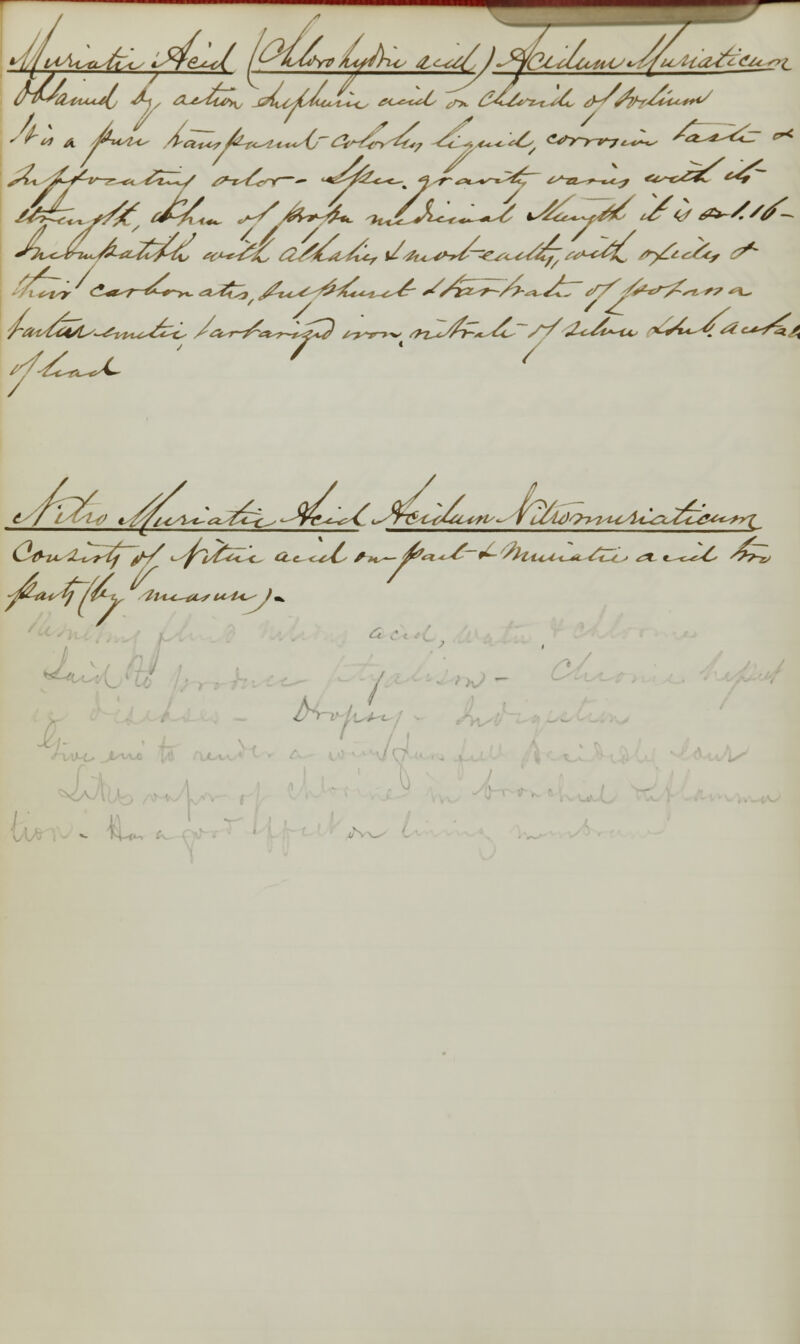 Muriatic Acid (Chlorohydric acid) Acidum Muriaticum
Obtained by action sulphuric acid on Chloride of Sodium
It is a pure transparent colorless liquid, corrosive taste &
suffocating odor - Spec. gravity varies with its
strength, when of proper medicinal strength it is 1.16 -
Incompatible with alkalies & most earths, with oxides &
their carbonates, sulphuret & tartrate of potassa
tartar-emetic tartarized iron, nitrate of silver & sub. acetate
of lead
Nitro Muriatic Acid Acidum Nitromuriaticum
Consists of Nitric acid one part & Muriatic acid two
parts (by measure).
fluid Nitrous acid, water, & chlorine
Said to produce ptyalism - Chronic hepat
ic diseases - Dropsy - Indigestion
Give eno to render a wineglass full decidedly sour
Likes vapor of chlorine in bronchial inflamma
tion - Has a good effect on lining membrane